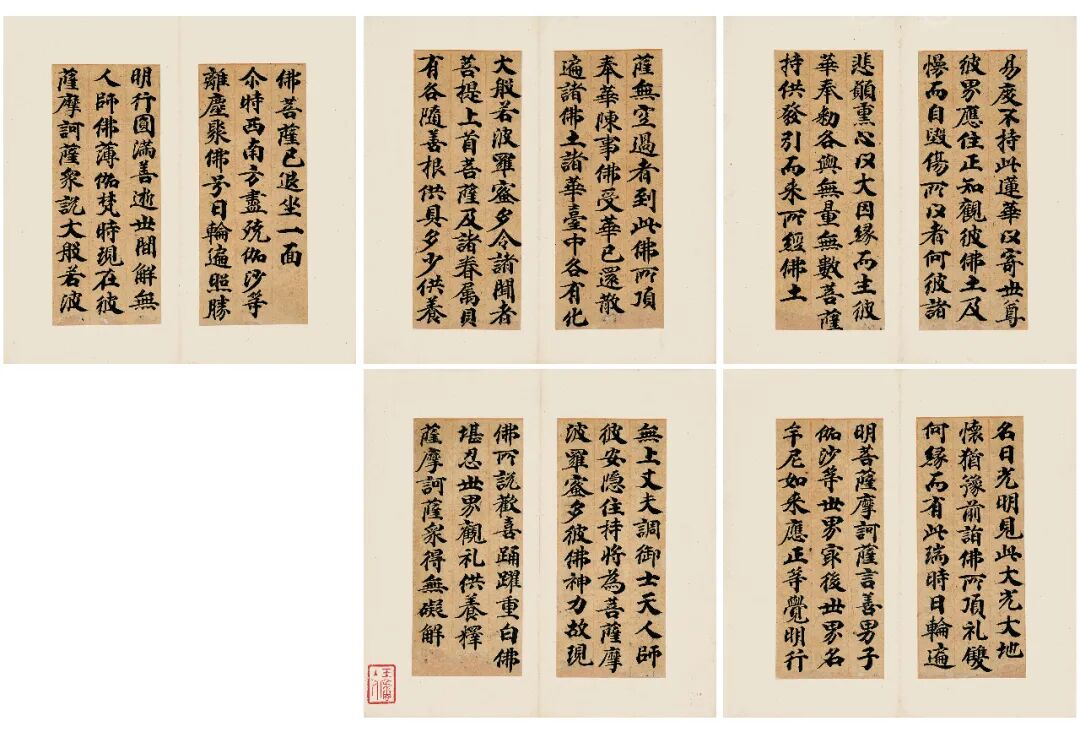 易度不持此蓮華以寄世尊
彼界應住正知觀彼佛土及
慢而自毀傷所以者何彼諸
悲願熏心以大因緣而生彼
華奉勅各與無量無數菩薩
持供發引而来所經佛土
薩無空過者到此佛所頂
奉華陳事佛受華已還散
遍諸佛土諸華臺中各有化
大般若波羅蜜多令諸聞者
菩提上首菩薩及諸眷属貟
有各隨善根供具多少供養
佛菩薩已退坐一面
尒時西南方盡殑伽沙等
離塵聚佛号日輪遍照勝
明行圓滿善逝世間解無
人師佛薄伽梵時現在彼
薩摩訶薩衆說大般若波
名日光明見此大光大地
懷猶豫前詣佛所頂礼雙
何緣而有此瑞時日輪遍
明菩薩摩訶薩言善男子
伽沙等世界㝡後世界名
牟尼如来應正等覺明行
無上丈夫調御士天人師
彼安隱住持將為菩薩摩
波羅蜜多彼佛神力故現
佛所說歡喜踊躍重白佛
堪忍世界觀礼供養釋
薩摩訶薩衆得無礙解